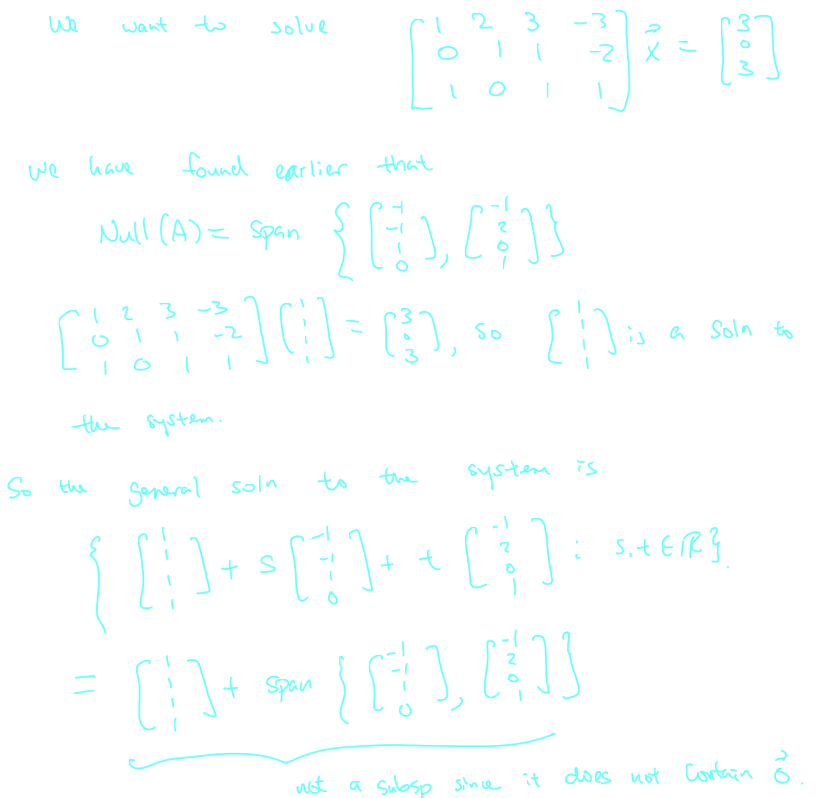 We want to solve [1 2 3 -3; 0 1 1 -2; 1 0 1 1] x⃗ = [3; 0; 3]
we have found earlier that
Null(A) = span { [-1; -1; 1; 0], [-1; 2; 0; 1] }
[1 2 3 -3; 0 1 1 -2; 1 0 1 1] [1; 1; 1; 1] = [3; 0; 3], so [1; 1; 1; 1] is a soln to
the system.
So the general soln to the system is
{ [1; 1; 1; 1] + s [-1; -1; 1; 0] + t [-1; 2; 0; 1] : s,t ∈ ℝ}.
= [1; 1; 1; 1] + span { [-1; -1; 1; 0], [-1; 2; 0; 1] }
not a subsp since it does not contain 0⃗.